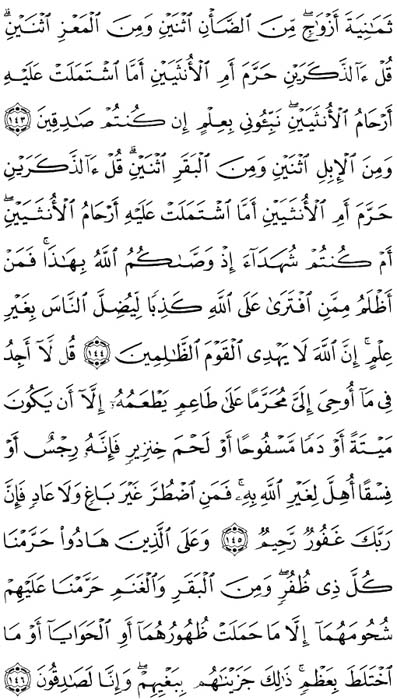 ثَمَـٰنِيَةَ أَزْوَٰجٍۖ مِّنَ ٱلضَّأْنِ ٱثْنَيْنِ وَمِنَ ٱلْمَعْزِ ٱثْنَيْنِۗ
قُلْ ءَآلذَّكَرَيْنِ حَرَّمَ أَمِ ٱلْأُنثَيَيْنِ أَمَّا ٱشْتَمَلَتْ عَلَيْهِ
أَرْحَامُ ٱلْأُنثَيَيْنِۖ نَبِّـُٔونِى بِعِلْمٍ إِن كُنتُمْ صَـٰدِقِينَ ١٤٣
وَمِنَ ٱلْإِبِلِ ٱثْنَيْنِ وَمِنَ ٱلْبَقَرِ ٱثْنَيْنِۗ قُلْ ءَآلذَّكَرَيْنِ
حَرَّمَ أَمِ ٱلْأُنثَيَيْنِ أَمَّا ٱشْتَمَلَتْ عَلَيْهِ أَرْحَامُ ٱلْأُنثَيَيْنِۖ
أَمْ كُنتُمْ شُهَدَآءَ إِذْ وَصَّىٰكُمُ ٱللَّهُ بِهَـٰذَاۚ فَمَنْ
أَظْلَمُ مِمَّنِ ٱفْتَرَىٰ عَلَى ٱللَّهِ كَذِبًا لِّيُضِلَّ ٱلنَّاسَ بِغَيْرِ
عِلْمٍۚ إِنَّ ٱللَّهَ لَا يَهْدِى ٱلْقَوْمَ ٱلظَّـٰلِمِينَ ١٤٤ قُل لَّآ أَجِدُ
فِى مَآ أُوحِىَ إِلَىَّ مُحَرَّمًا عَلَىٰ طَاعِمٍ يَطْعَمُهُۥٓ إِلَّآ أَن يَكُونَ
مَيْتَةً أَوْ دَمًا مَّسْفُوحًا أَوْ لَحْمَ خِنزِيرٍ فَإِنَّهُۥ رِجْسٌ أَوْ
فِسْقًا أُهِلَّ لِغَيْرِ ٱللَّهِ بِهِۦۚ فَمَنِ ٱضْطُرَّ غَيْرَ بَاغٍ وَلَا عَادٍ فَإِنَّ
رَبَّكَ غَفُورٌ رَّحِيمٌ ١٤٥ وَعَلَى ٱلَّذِينَ هَادُوا۟ حَرَّمْنَا
كُلَّ ذِى ظُفُرٍۖ وَمِنَ ٱلْبَقَرِ وَٱلْغَنَمِ حَرَّمْنَا عَلَيْهِمْ
شُحُومَهُمَآ إِلَّا مَا حَمَلَتْ ظُهُورُهُمَآ أَوِ ٱلْحَوَايَآ أَوْ مَا
ٱخْتَلَطَ بِعَظْمٍۚ ذَٰلِكَ جَزَيْنَـٰهُم بِبَغْيِهِمْۖ وَإِنَّا لَصَـٰدِقُونَ ١٤٦